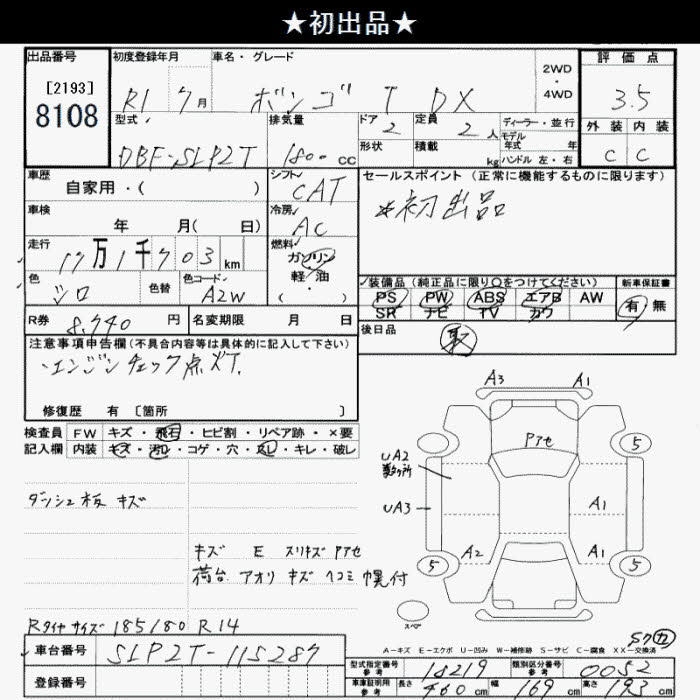 ★初出品★
出品番号 初度登録年月 車名・グレード 2WD ・ 4WD 評価点
[2193] 8108 R1 7月 ボンゴ T DX 3.5
型式 排気量 ドア 2 定員 2人 ディーラー・並行 外装 内装
DBF-SLP2T 1800cc 形状 積載 kg モデル年式 年 C C
ハンドル 左・右
車歴 シフト セールスポイント (正常に機能するものに限ります)
自家用・( ) CAT *初出品
車検 冷房
年 月( 日) AC
走行 燃料
17万1千703km ガソリン
色 色替 色コード 軽・油 装備品 (純正品に限り○をつけてください) 新車保証書
シロ A2W ・( ) PS PW ABS エアB AW 有 無
SR ナビ TV カワ
R券 8,740円 名変期限 月 日 後日品
取
注意事項申告欄 (不具合内容等は具体的に記入して下さい)
・エンジンチェック点灯.
修復歴 有 〔箇所 〕
検査員 FW キズ・飛石・ヒビ割・リペア跡・×要
記入欄 内装 キズ・汚レ・コゲ・穴・スレ・キレ・破レ
A3 A1
Pアセ
5 5
UA2
数ケ所
ダッシュ板 キズ
UA3 A1
キズ E スリキズ Pアセ
A2 A1
荷台 アオリ キズ ヘコミ 幌付
5 5
スペア
Rタイヤサイズ 185/80 R14
A-キズ E-エクボ U-凹み W-補修跡 S-サビ C-腐食 XX-交換済
車台番号 SLP2T-115287
型式指定番号 参考 18219 類別区分番号 参考 0052
登録番号
車庫証明用 参考 長さ 460cm 幅 169cm 高さ 193cm